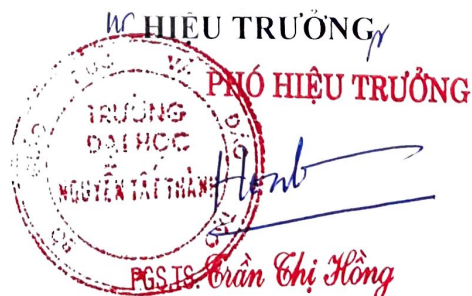 HIỆU TRƯỞNG
PHÓ HIỆU TRƯỞNG
TRƯỜNG
ĐẠI HỌC
NGUYỄN TẤT THÀNH
PGS.TS. Trần Thị Hồng